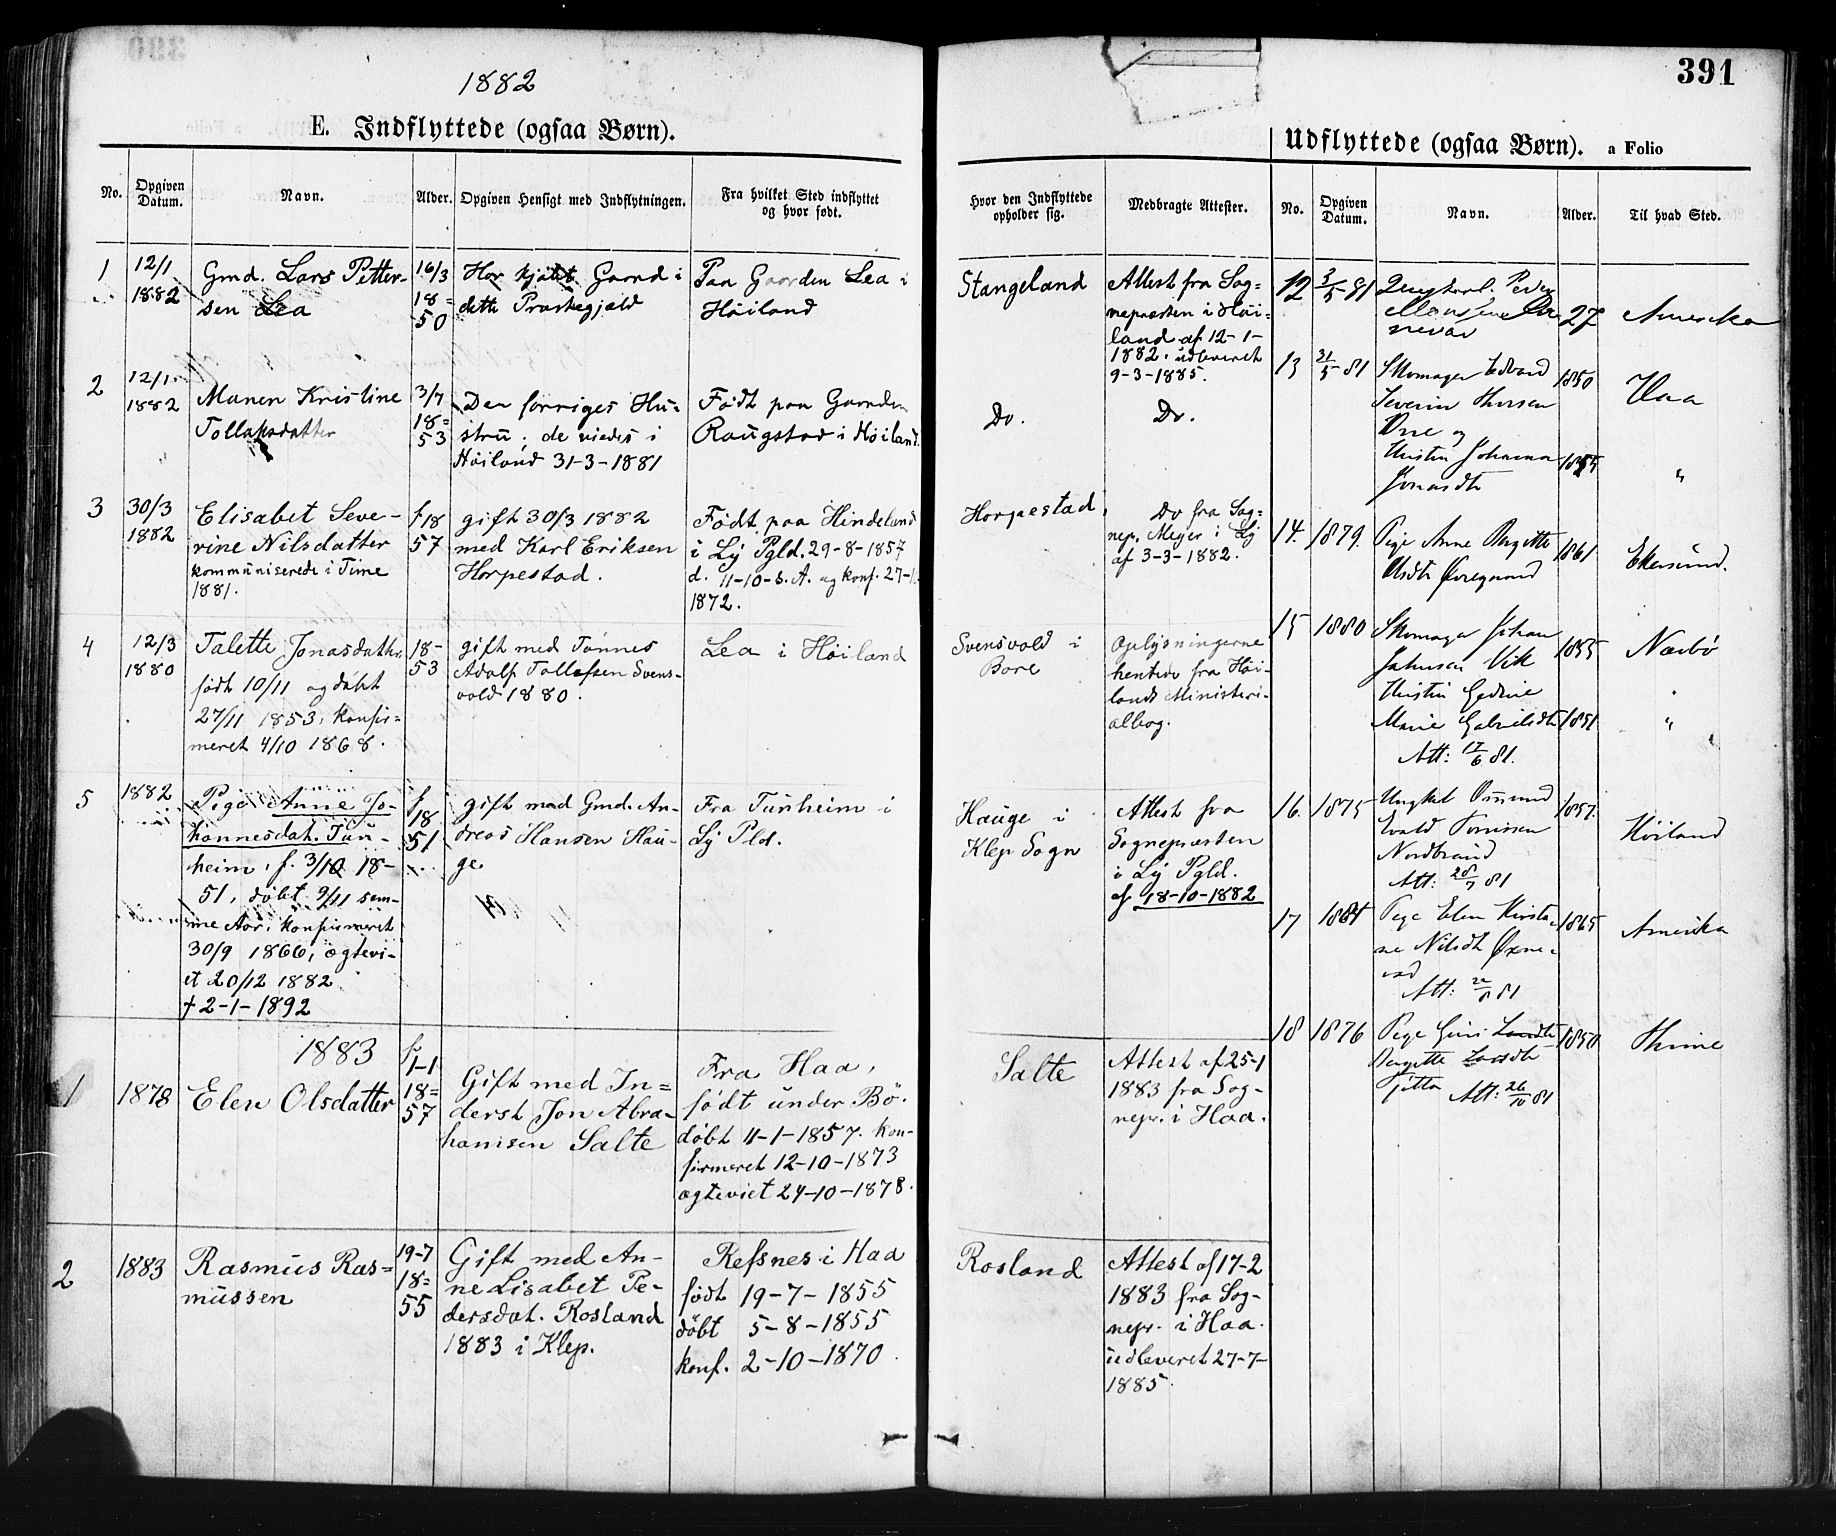 391
1882
E. Indflyttede (ogsaa Børn).
Udflyttede (ogsaa Børn). a Folio
No.
Opgiven Datum.
Navn.
Alder.
Opgiven Hensigt med Indflytningen.
Fra hvilket Sted indflyttet
og hvor født.
Hvor den Indflyttede
opholder sig.
Medbragte Attester.
No.
Opgiven Datum.
Navn.
Alder.
Til hvad Sted.
1
12/1
1882
Gmd. Lars Petter-
sen Lea
16/3
18=
50
Har kjøbt Gaard i
dette Præstegjæld
Paa Gaarden Lea i
Höiland
Stangeland
Attest fra Sog-
nepræsten i Höi-
land af 12-1-
1882. udleveret
9-3-1885.
2
12/1
1882
Maren Kristine
Tollaksdatter
3/7
18=
53
Den forriges Hu-
stru; de viedes i
Höiland 31-3-1881
Født paa Gaarden
Raugstad i Höiland.
Do.
Do.
3
30/3
1882
Elisabet Seve-
rine Nilsdatter
kommuniserede i Time
1881.
f. 18
57
gift 30/3 1882
med Karl Eriksen
Horpestad.
Født paa Hindeland
i Ly Pgld. 29-8-1857
d. 11-10-s. A. og konf. 27-
1872.
Horpestad,
Do fra Sog-
nep. Meyer i Ly
af 3-3-1882.
4
12/3
1880
Talette Jonasdatter
født 10/11 og døbt
27/11 1853, konfir=
meret 4/10 1868.
18-
53
gift med Tønnes
Adolf Tollefsen Svens-
vold 1880.
Lea i Höiland
Svensvold i
Bore
Oplysningerne
hentede fra Höi-
lands Ministeri-
albog.
5
1882
Pige Anne Jo-
hannesdat. Tun-
heim, f. 3/10 18-
51, døbt 9/11 sam-
me Aar, konfirmeret
30/9 1866, ægtevi-
et 20/12 1882.
† 2-1-1892
f.
18
51
gift med Gmd. An-
dreas Hansen Hau-
ge
Fra Tunheim i
Ly Pld.
Hauge i
Klep Sogn
Attest fra
Sognepræsten
i Ly Pgld.
af 18-10-1882
1883
1
1878
Elen Olsdatter
f.
1-1
18=
57
Gift med In=
derst Jon Abra-
hamsen Salte
Fra Haa,
født under Bö.
døbt 11-1-1857. kon-
firmeret 12-10-1873
ægteviet 24-10-1878.
Salte
Attest af 25-1
1883 fra Sog-
nepr. i Haa.
2
1883
Rasmus Ras=
mussen
19-7
18=
55
Gift med An-
ne Lisabet Pe-
dersdat. Rosland
1883 i Klep.
Refsnes i Haa
født 19-7-1855
døbt 5-8-1855
konf. 2-10-1870.
Rosland
Attest af 17-2
1883 fra Sog-
nepr. i Haa.
udleveret 27-7-
1885.
12
3/5 81
27
Amerika
13
31/5 81
Skomager Edvard
Severin Thorsen
Orre og
Kristin Johanna
Jonasdtr
1850
1855
Haa
"
14.
1879.
Pige Anne Birgitte
Øvregaard
1861
Ekersund.
15
1880
Skomager Johan
Johnsen Vik
Kristin Gedine
Marie Gabrielsdtr
Att: 17/6 81.
1855
1851
Nærbø
"
16.
1875
Ungkal Ommund
Evald Tønnesen
Nordbraud
Att: 28/7 81
1857.
Höiland
17
1881
Pige Elen Kirsta-
ne Nilsdt Øxne-
vad
Att: 22/8 81
1865
Amerika
18
1876
Pige Guri Larsdtr
Bergitte Larsdtr
Att: 26/10 81
1850
Thime